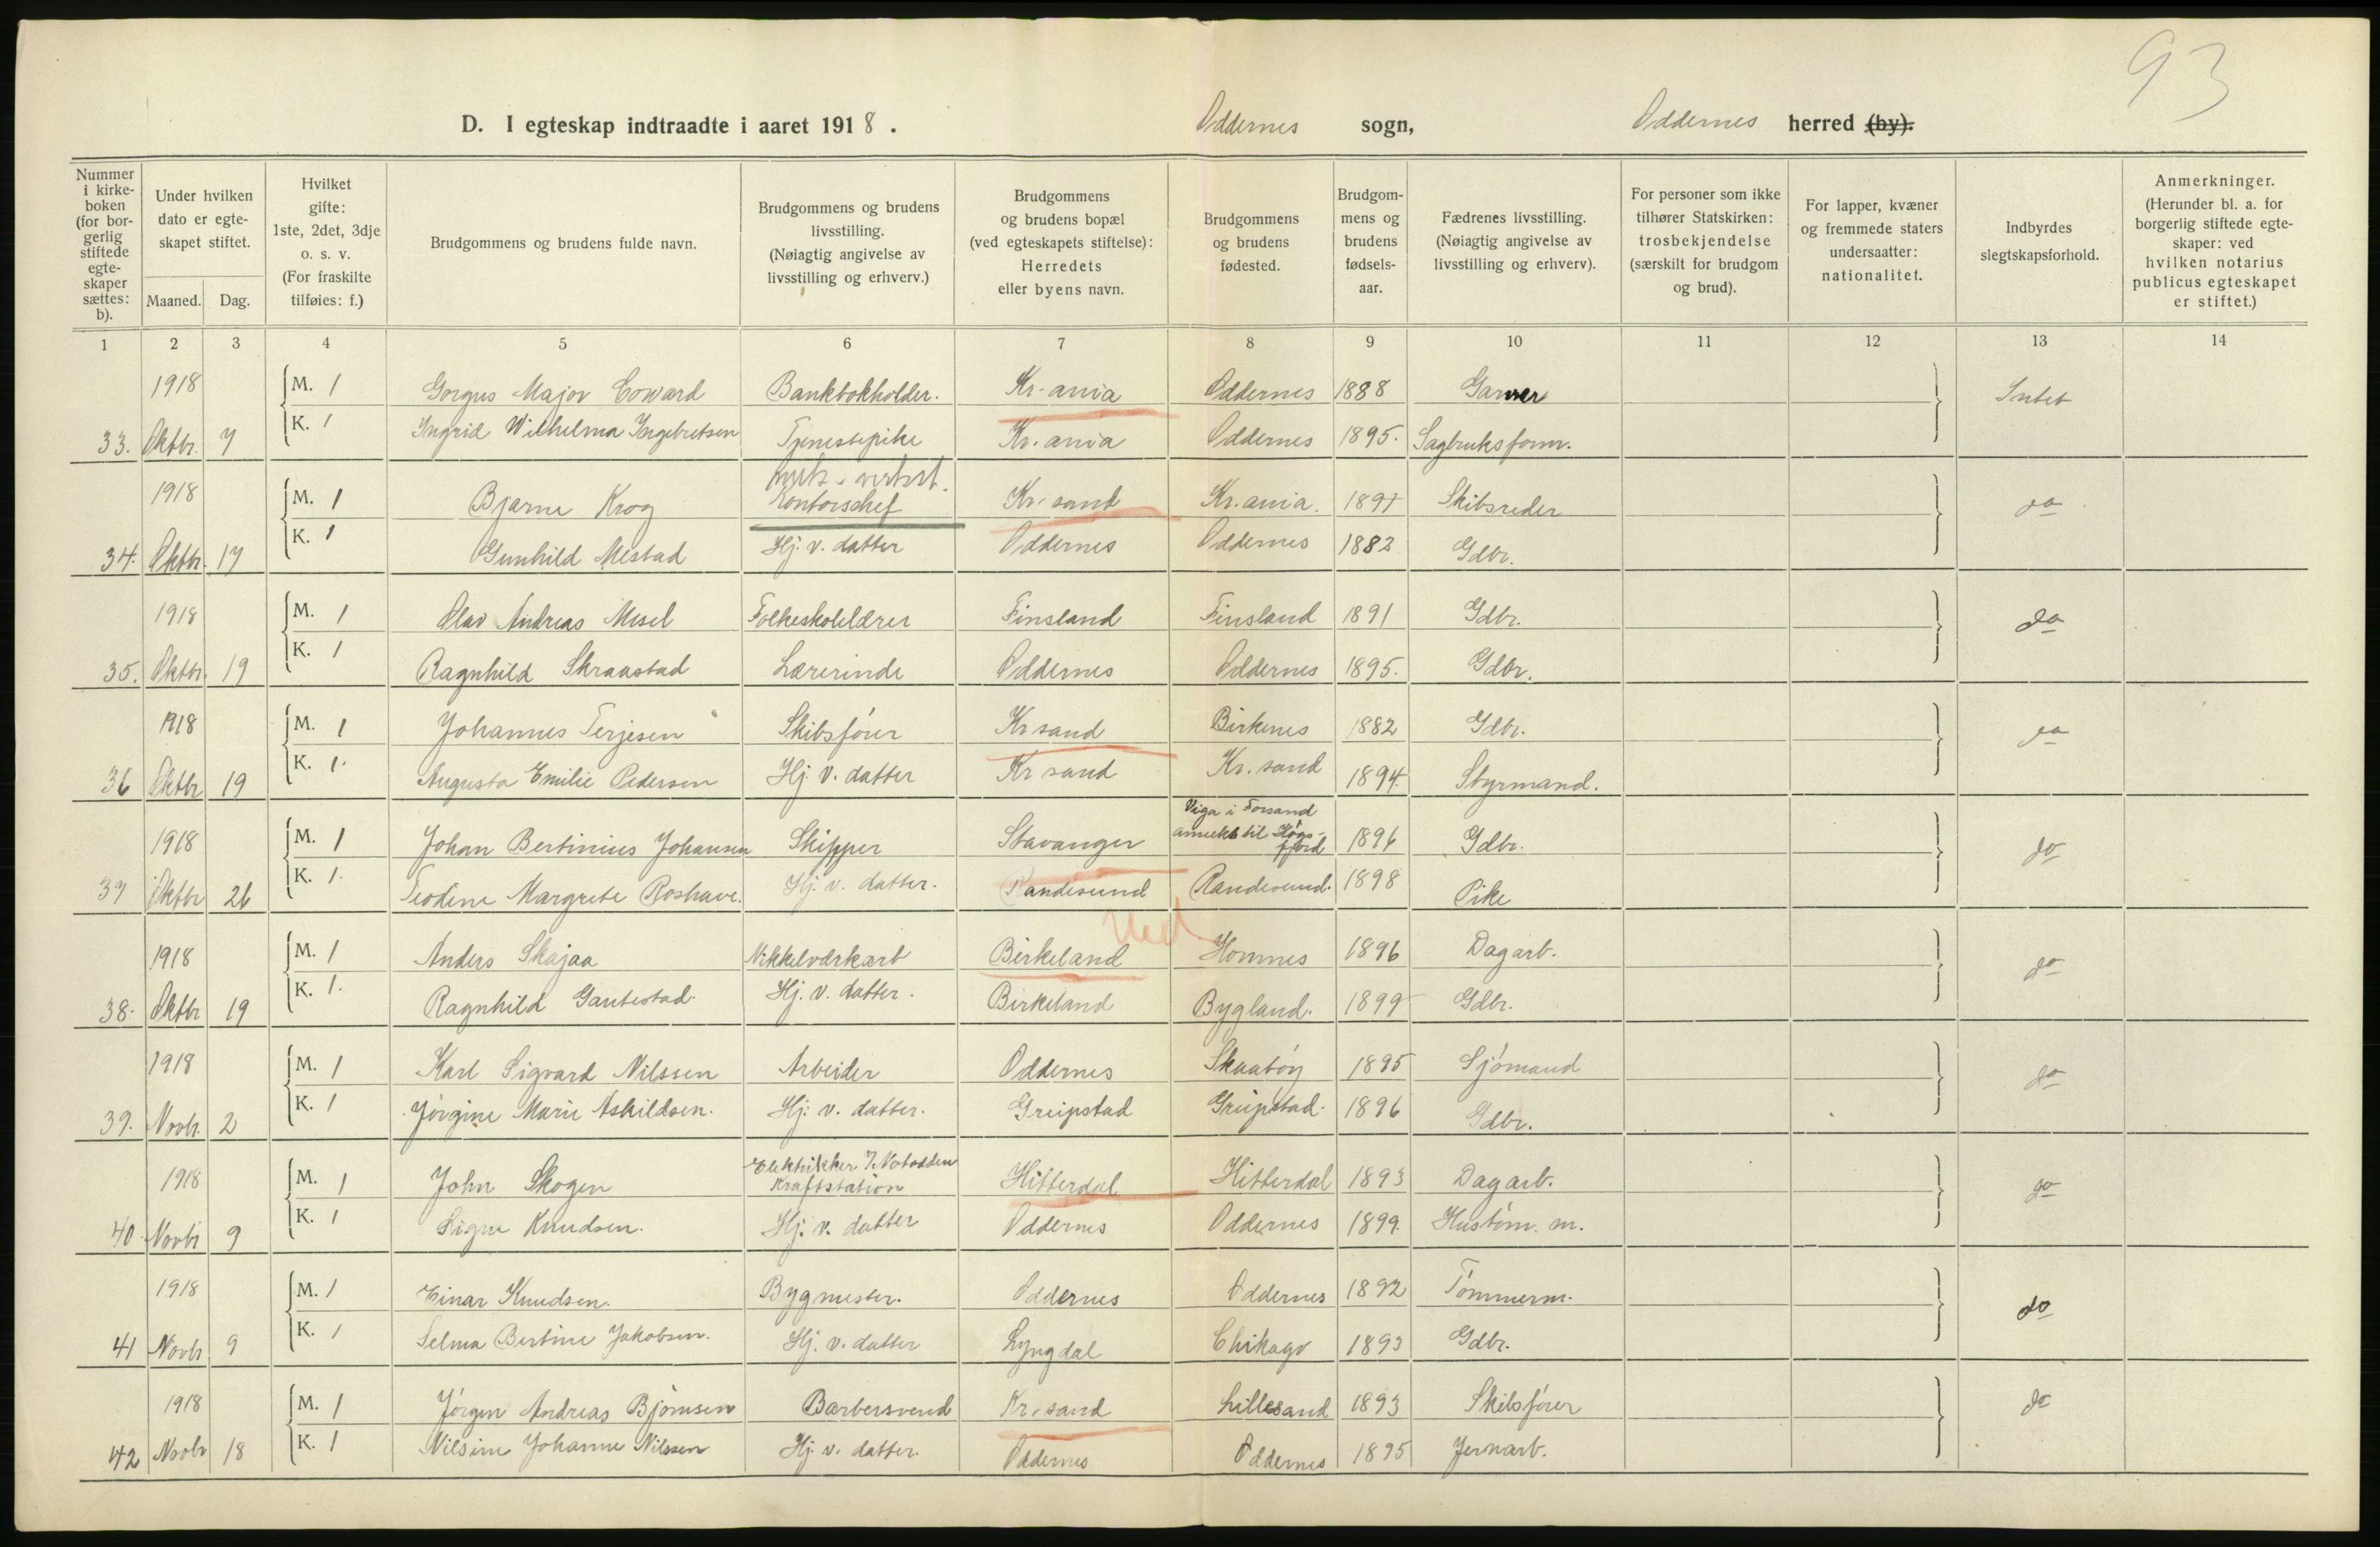 93
D. I egteskap indtraadte i aaret 1918. Oddernes sogn, Oddernes herred (by).
Nummer i kirke-boken (for bor-gerlig stiftede egte-skaper sættes: b).
Under hvilken dato er egte-skapet stiftet.
Maaned. Dag.
Hvilket gifte: 1ste, 2det, 3dje o. s. v. (For fraskilte tilføies: f.)
Brudgommens og brudens fulde navn.
Brudgommens og brudens livsstilling. (Nøiagtig angivelse av livsstilling og erhverv.)
Brudgommens og brudens bopæl (ved egteskapets stiftelse): Herredets eller byens navn.
Brudgommens og brudens fødested.
Brudgom-mens og brudens fødsels-aar.
Fædrenes livsstilling. (Nøiagtig angivelse av livsstilling og erhverv).
For personer som ikke tilhører Statskirken: trosbekjendelse (særskilt for brudgom og brud).
For lapper, kvæner og fremmede staters undersaatter: nationalitet.
Indbyrdes slegtskapsforhold.
Anmerkninger. (Herunder bl. a. for borgerlig stiftede egte-skaper: ved hvilken notarius publicus egteskapet er stiftet.)
1 2 3 4 5 6 7 8 9 10 11 12 13 14
1918 M. 1 Gorgus Major Coward Bankbokholder. Kr-ania Oddernes 1888 Garver Intet
33. Oktbr. 7 K. 1 Ingrid Wilhelma Ingebretsen Tjenestepike Kr. ania Oddernes 1895. Sagbruksform.
1918 M. 1 Bjarne Krog Kontorschef Kr. sand Kr. ania. 1897 Skibsreder do
34. Oktbr. 17 K. 1 Gunhild Mestad Hj. v. datter Oddernes Oddernes 1882 Gdbr.
1918 M. 1 Olav Andreas Mesel Folkeskolelærer Finsland Finsland 1891 Gdbr. do
35. Oktbr. 19 K. 1 Ragnhild Skraastad Lærerinde Oddernes Oddernes 1895. Gdbr.
1918 M. 1 Johannes Terjesen Skibsfører Kr sand Birkenes 1882 Gdbr. do
36 Oktbr 19 K. 1. Augusta Emilie Pedersen Hj. v. datter Kr sand Kr. sand 1894. Styrmand.
1918 M. 1 Johan Bertinius Johansen Skipper Stavanger Viga i Forsand anneks til Høgsfjord 1896 Gdbr. do
37 Oktbr 26 K. 1. Teodine Margrete Roshave. Hj. v. datter. Randesund Randesund. 1898 Pike
1918 M. 1 Anders Skajaa Nikkelværkarb Birkeland Homnes 1896 Dagarb. do
38. Oktbr 19 K. 1. Ragnhild Gautestad. Hj. v. datter. Birkeland Bygland. 1899 Gdbr.
1918 M. 1 Karl Sigvard Nilssen Arbeider Oddernes Skaatøy 1895 Sjømand do
39. Novbr. 2 K. 1 Jørgine Marie Askildsen. Hj. v. datter. Greipstad Greipstad. 1896 Gdbr.
1918 M. 1 John Skogen Elektriker v. Notodden Kraftstation Hitterdal Hitterdal 1893 Dagarb. do
40 Novbr 9 K. 1 Signe Knudsen. Hj. v. datter Oddernes Oddernes 1899. Hustøm. m.
1918 M. 1 Einar Knudsen. Bygmester. Oddernes Oddernes 1892 Tømmerm. do
41 Novbr 9 K. 1 Selma Bertine Jakobsen. Hj. v. datter Lyngdal Chikago 1893 Gdbr.
1918 M. 1 Jørgen Andreas Bjørnsen Barbersvend Kr. sand Lillesand 1893 Skibsfører do
42 Novbr 18 K. 1 Nilsine Johanne Nilssen Hj. v. datter. Oddernes Oddernes 1895 Jernarb.